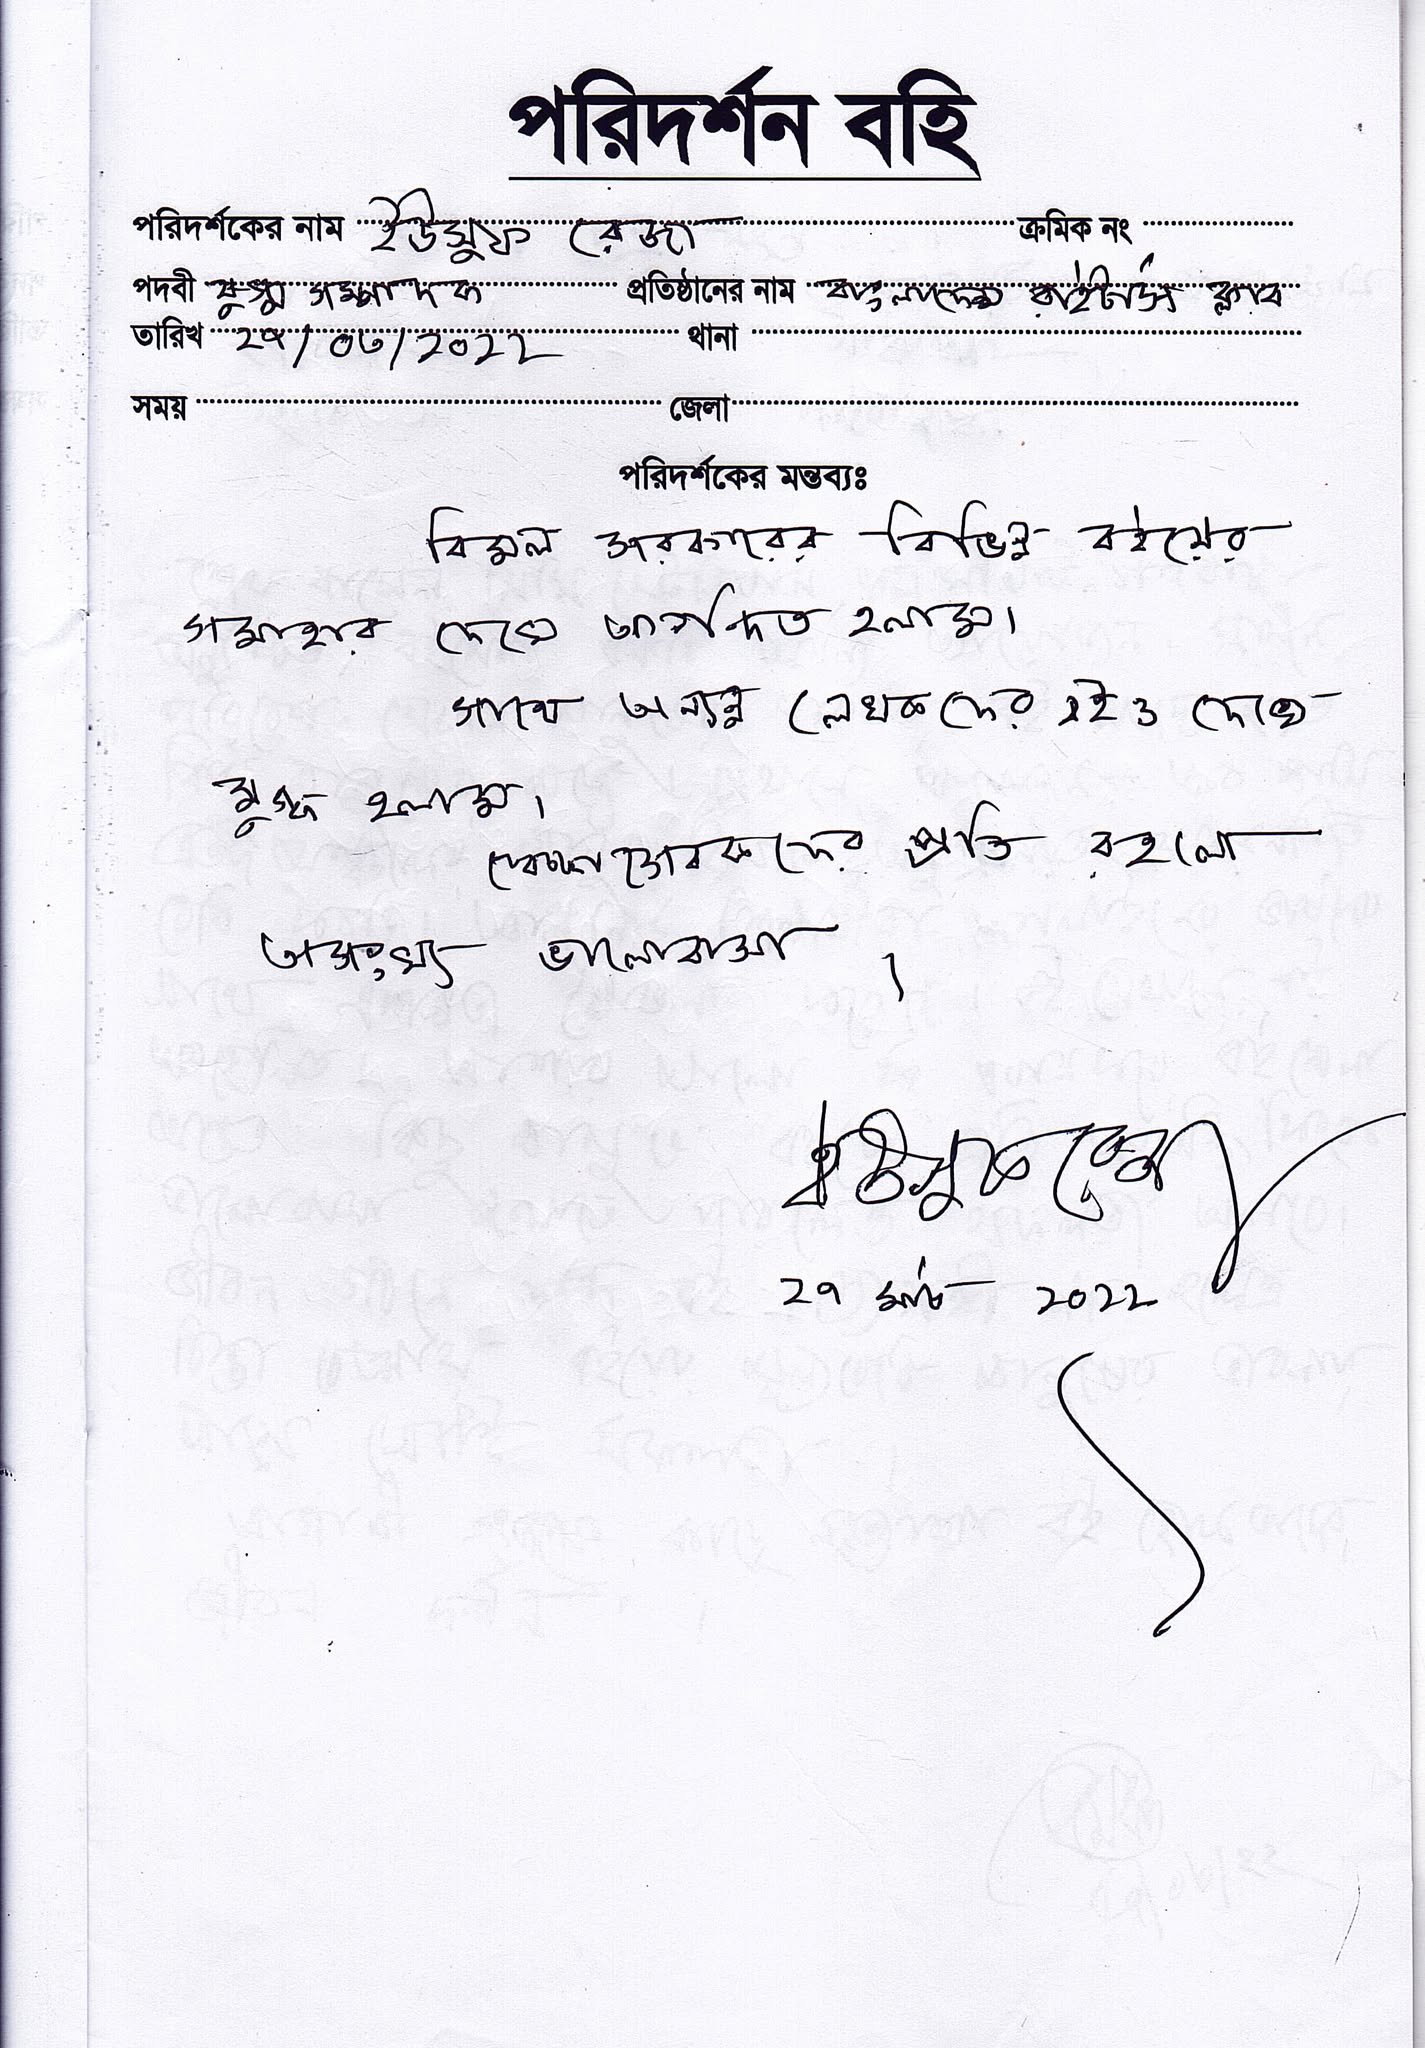 পরিদর্শন বহি
পরিদর্শকের নাম ইউসুফ রেজা ক্রমিক নং
পদবী যুগ্ম সম্পাদক প্রতিষ্ঠানের নাম বাংলাদেশ রাইটার্স ক্লাব
তারিখ ২৭/০৩/২০২২ থানা
সময় জেলা
পরিদর্শকের মন্তব্যঃ
বিমল সরকারের বিভিন্ন বইয়ের
সমাহার দেখে আনন্দিত হলাম।
সাথে অন্যান্য লেখকদের বইও দেখে
মুগ্ধ হলাম।
স্বেচ্ছাসেবকদের প্রতি রইলো
অসংখ্য ভালোবাসা ।
ইউসুফ রেজা
২৭ মার্চ ২০২২